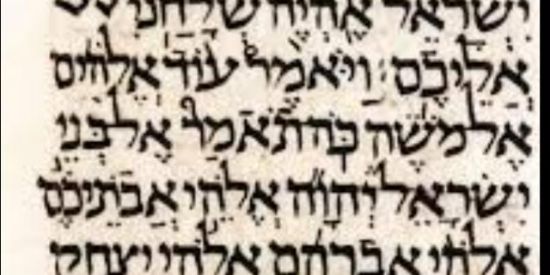 ישראל אהיה שלחני
אליכם׃ ויאמר עוד אלהים
אל משה כה תאמר אל בני
ישראל יהוה אלהי אבתיכם
אלהי אברהם אלהי יצחק